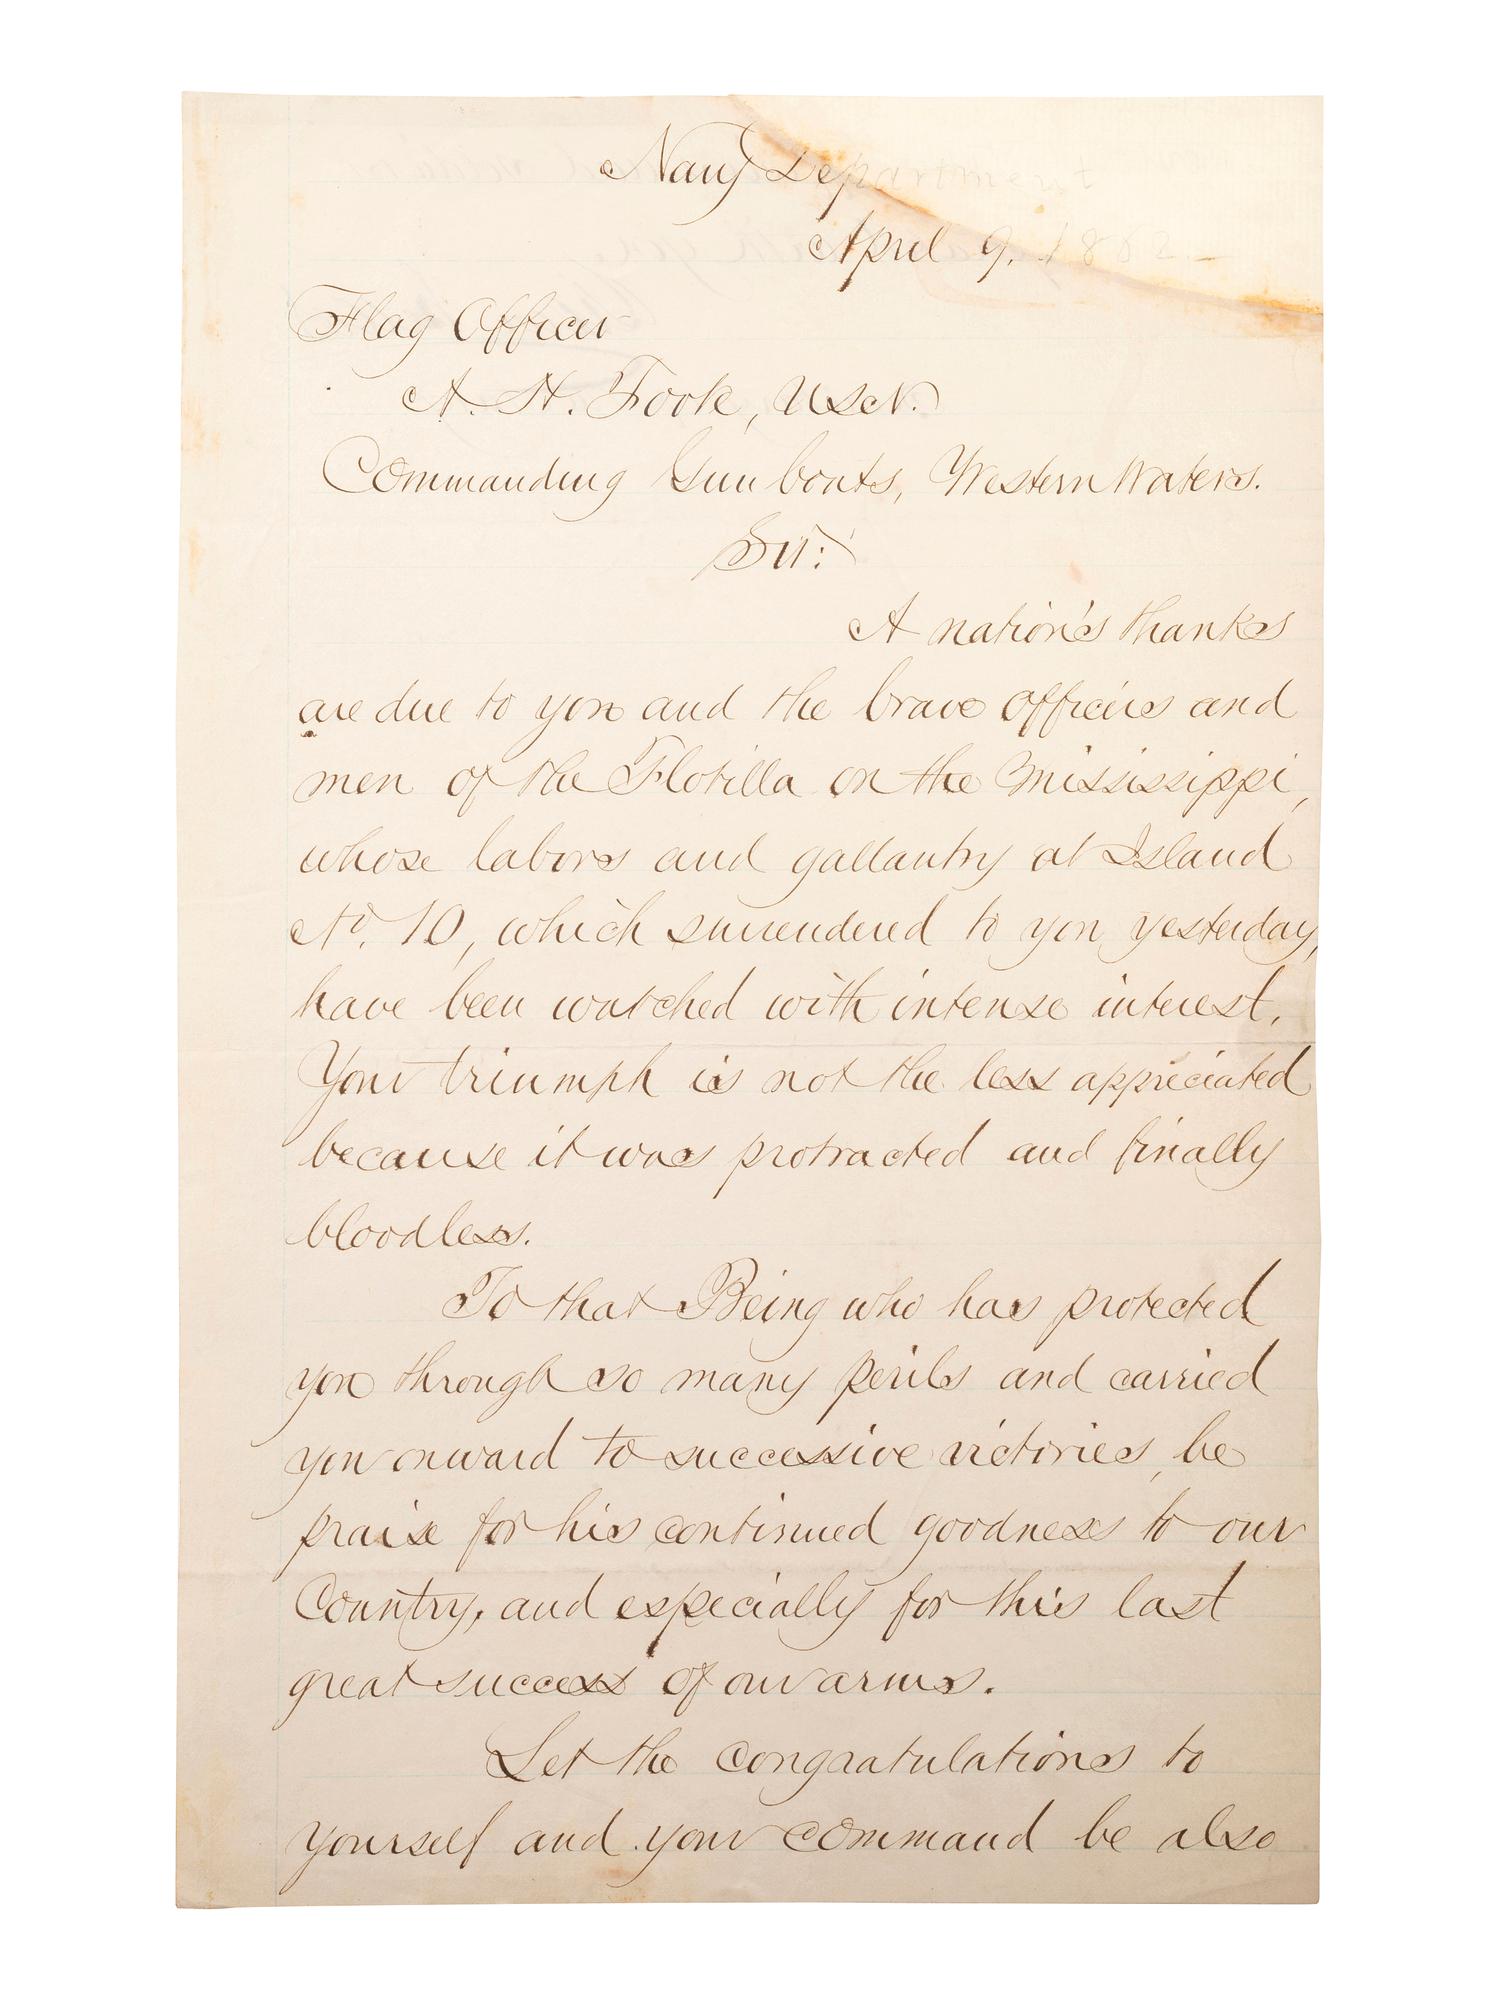 Navy Department
April 9. 1862.
Flag Officer
A. H. Foote, U.S.N.
Commanding Gun boats, Western Waters.
Sir:
A nation's thanks
are due to you and the brave officers and
men of the Flotilla on the Mississippi,
whose labors and gallantry at Island
No. 10, which surrendered to you yesterday,
have been watched with intense interest.
Your triumph is not the less appreciated
because it was protracted and finally
bloodless.
To that Being who has protected
you through so many perils and carried
you onward to successive victories, be
praise for his continued goodness to our
Country, and especially for this last
great success of our arms.
Let the congratulations to
yourself and your command be also